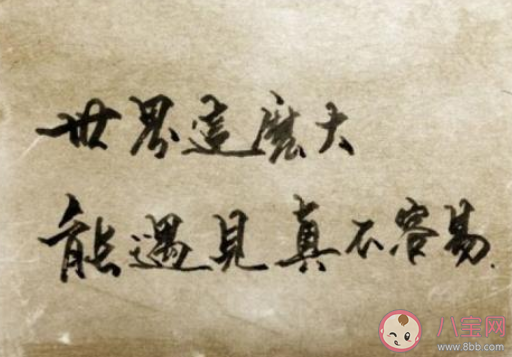 世界這麽大
能遇見真不容易.
八宝网
www.8bb.com